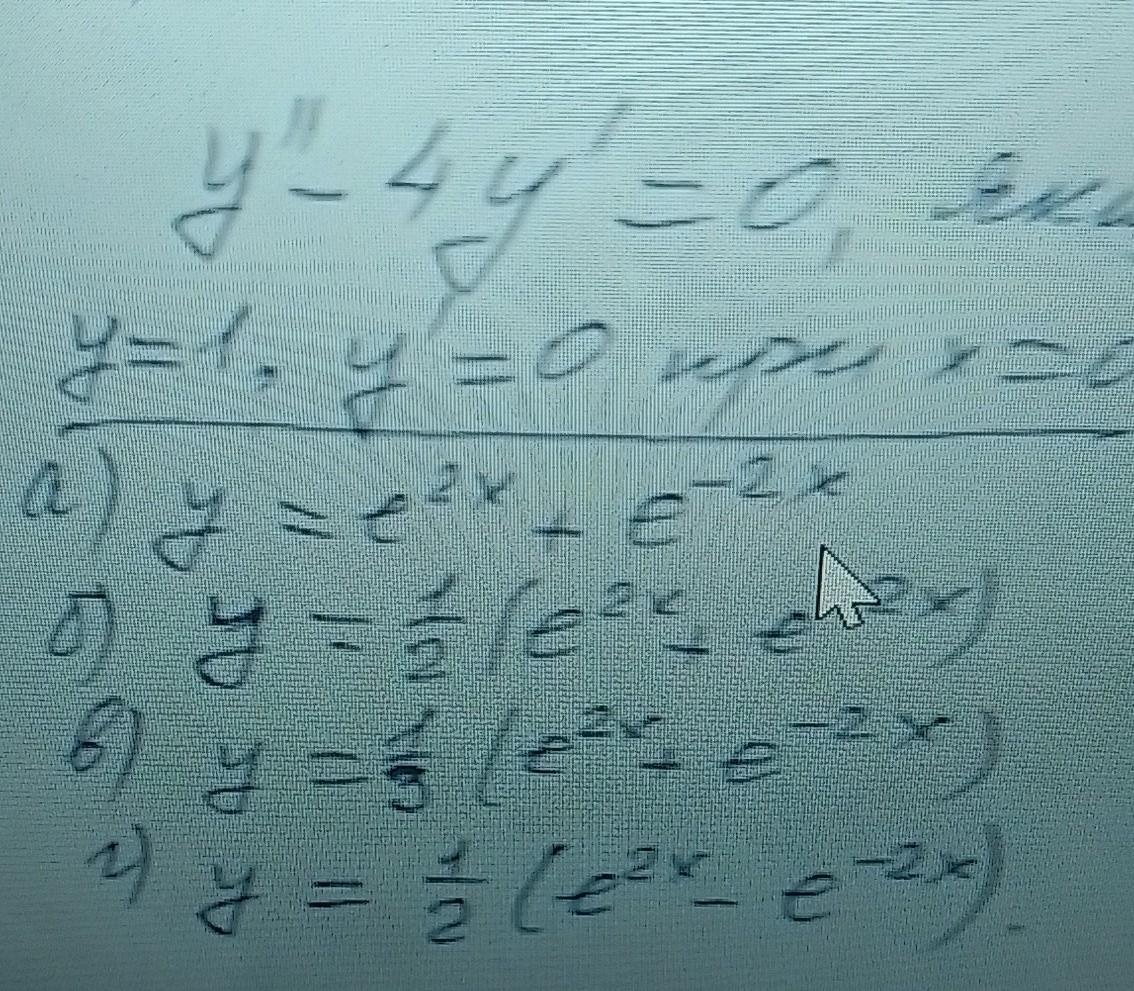 y'' - 4y' = 0,
y=1, y' = 0 при x=0
а) y = e^{2x} + e^{-2x}
б) y = 1/2 (e^{2x} + e^{-2x})
в) y = 1/3 (e^{2x} - e^{-2x})
г) y = 1/2 (e^{2x} - e^{-2x}).